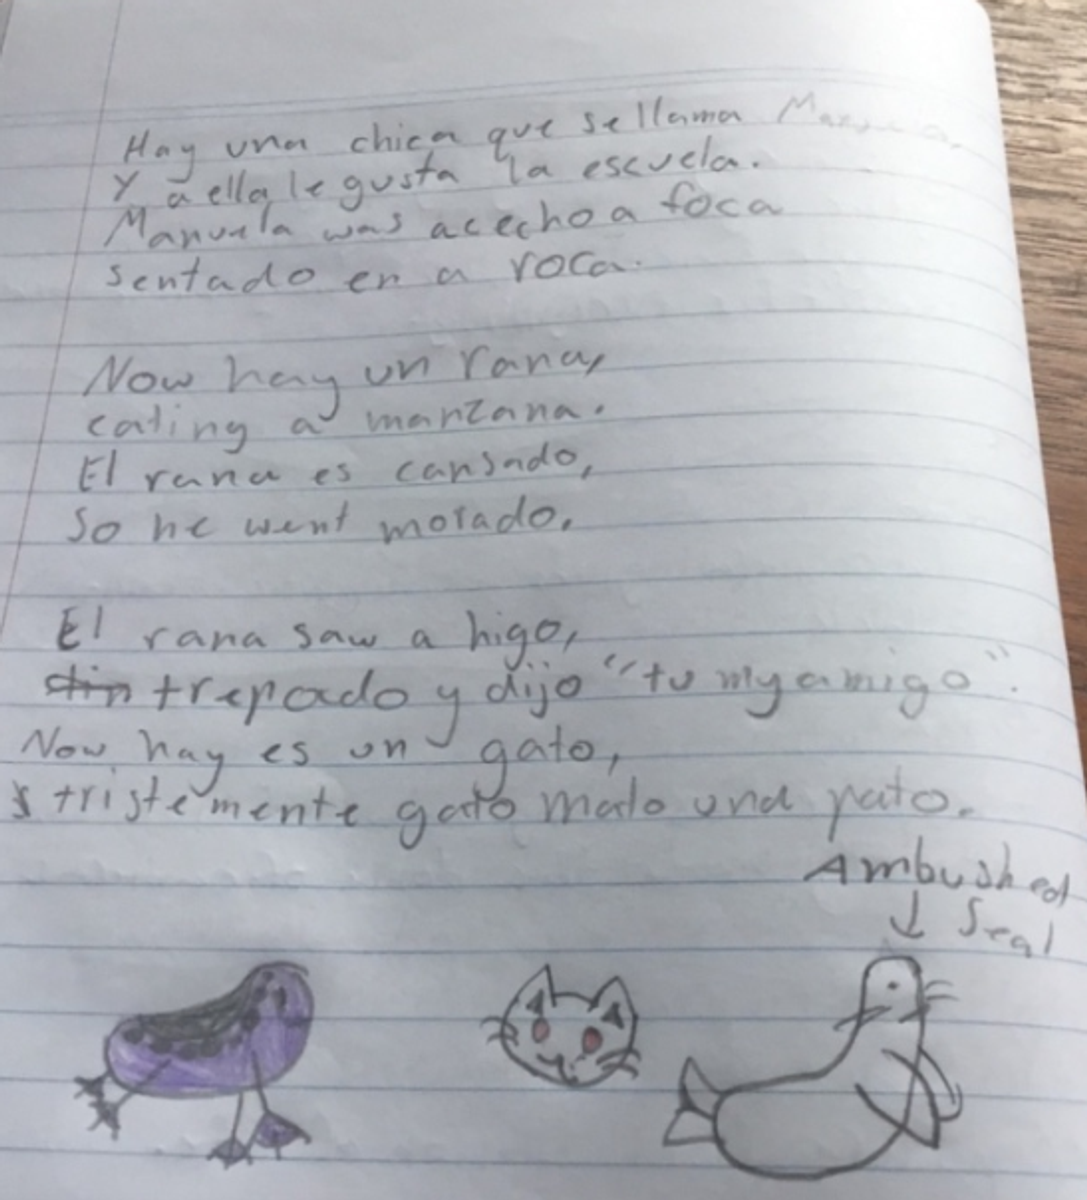 Hay una chica que se llama
Y a ella le gusta la escuela.
Manuela was acecho a foca
sentado en a roca.
Now hay un rana,
eating a manzana.
El rana es cansado,
So he went morado.
El rana saw a higo,
trepado y dijo "tu my amigo".
Now hay es un gato,
y tristemente gato mato una pato.
Ambushed
↓ Seal